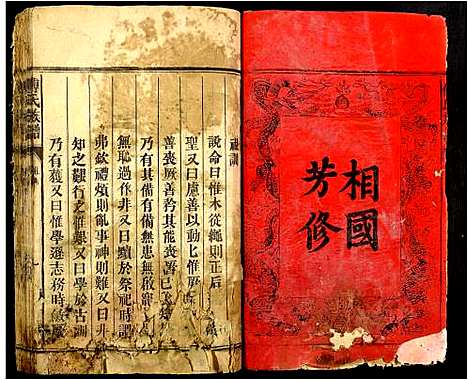 相國
芳修
祖訓
說命曰惟木從繩則正后
聖又曰慮善以動惟厥
善喪厥善矜其能喪厥
乃有其備有備無患無啟寵
無恥過作非又曰黷於祭祀時謂
弗欽禮煩則亂事神則難又曰非
知之艱行之惟艱又曰學於古訓
乃有獲又曰惟學遜志務時敏
氏族譜